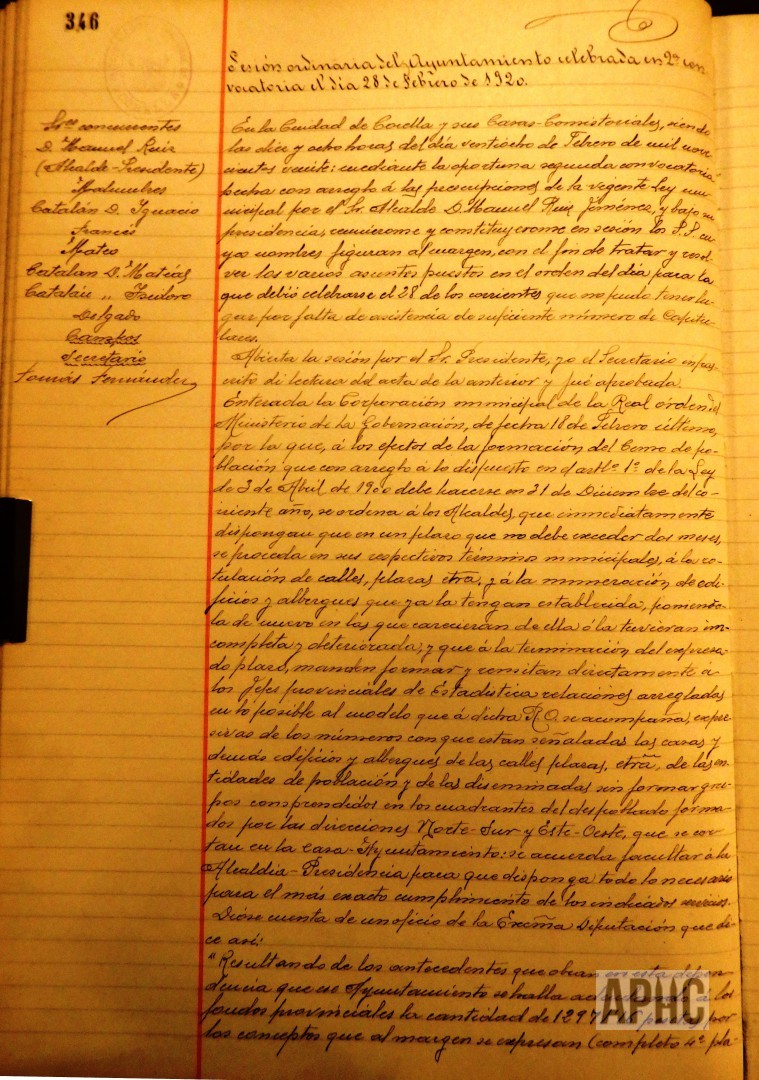 346
Sesión ordinaria del Ayuntamiento celebrada en 2ª con
vocatoria el día 28 de Febrero de 1920.
Sres concurentes
D. Manuel Ruiz
(Alcalde-Presidente)
Catalán D. Ignacio
Francés
Mateo
Catalan D. Matías
Catalán „ Isidoro
Delgado
Campos
Secretario
Tomás Fernández
En la Ciudad de Corella y sus Casas-Consistoriales, siendo
las diez y ocho horas del día ventiocho de Febrero de mil nove
cientos veinte: mediante la oportuna segunda convocatoria
hecha con arreglo á las prescripciones de la vegente Ley mu
nicipal por el Sr. Alcalde D. Manuel Ruiz Jiménez, y bajo su
presidencia, reuniéronse y constituyérome en sesión los S.S. cu
yos nombres figuran al margen, con el fin de tratar y resol
ver los varios asuntos puestos en el orden del día para la
que debió celebrarse el 28 de los corrientes que no pudo tener lu
gar por falta de asistencia de suficiente número de Capitu
lares.
Abierta la sesión por el Sr. Presidente, yo el Secretario infras
crito di lectura del acta de la anterior y fué aprobada.
Enterada la Corporación municipal de la Real órden del
Ministerio de la Gobernación, de fecha 18 de Febrero último,
por la que, á los efectos de la formación del Censo de po
blación que con arreglo á lo dispuesto en el artlº 1º de la Ley
de 3 de Abril de 1900 debe hacerse en 31 de Diciembre del co
rriente año, se ordena á los Alcaldes, que inmediatamente
dispongan que en un plazo que no debe exceder dos meses,
se proceda en sus respectivos términos municipales, á la ro-
tulación de calles, plazas etrª. y á la numeración de edi-
ficios y albergues que ya la tengan establecida, poniendo
la de nuevo en las que carecieran de ella ó la tuvieran in-
completa y deteriorada; y que á la terminación del expresa-
do plazo, manden formar y remitan directamente á
los Jefes provinciales de Estadística relaciones arregladas
en lo posible al modelo que á dicha R.O. se acompaña, expre
sivas de los números con que estan señaladas las casas y
demás edificios y albergues de las calles plazas, etrª, de las en
tidades de población y de las diseminadas sin formar gru-
pos comprendidos en los cuadrantes del despoblado forma-
dos por las direcciones Norte-Sur y Este-Oeste, que se cor
tan en la Casa-Ayuntamiento: se acuerda facultar á la
Alcaldía-Presidencia para que disponga todo lo necesario
para el más exacto cumplimiento de los indicados servicios.
Dióse cuenta de un oficio de la Excmª Diputación que di-
ce así:
"Resultando de los antecedentes que obran en esta depen
dencia que ese Ayuntamiento se halla adeudando á los
fondos provinciales la cantidad de pesetas por
los conceptos que al margen se expresan (completo 4º pla-
APHC